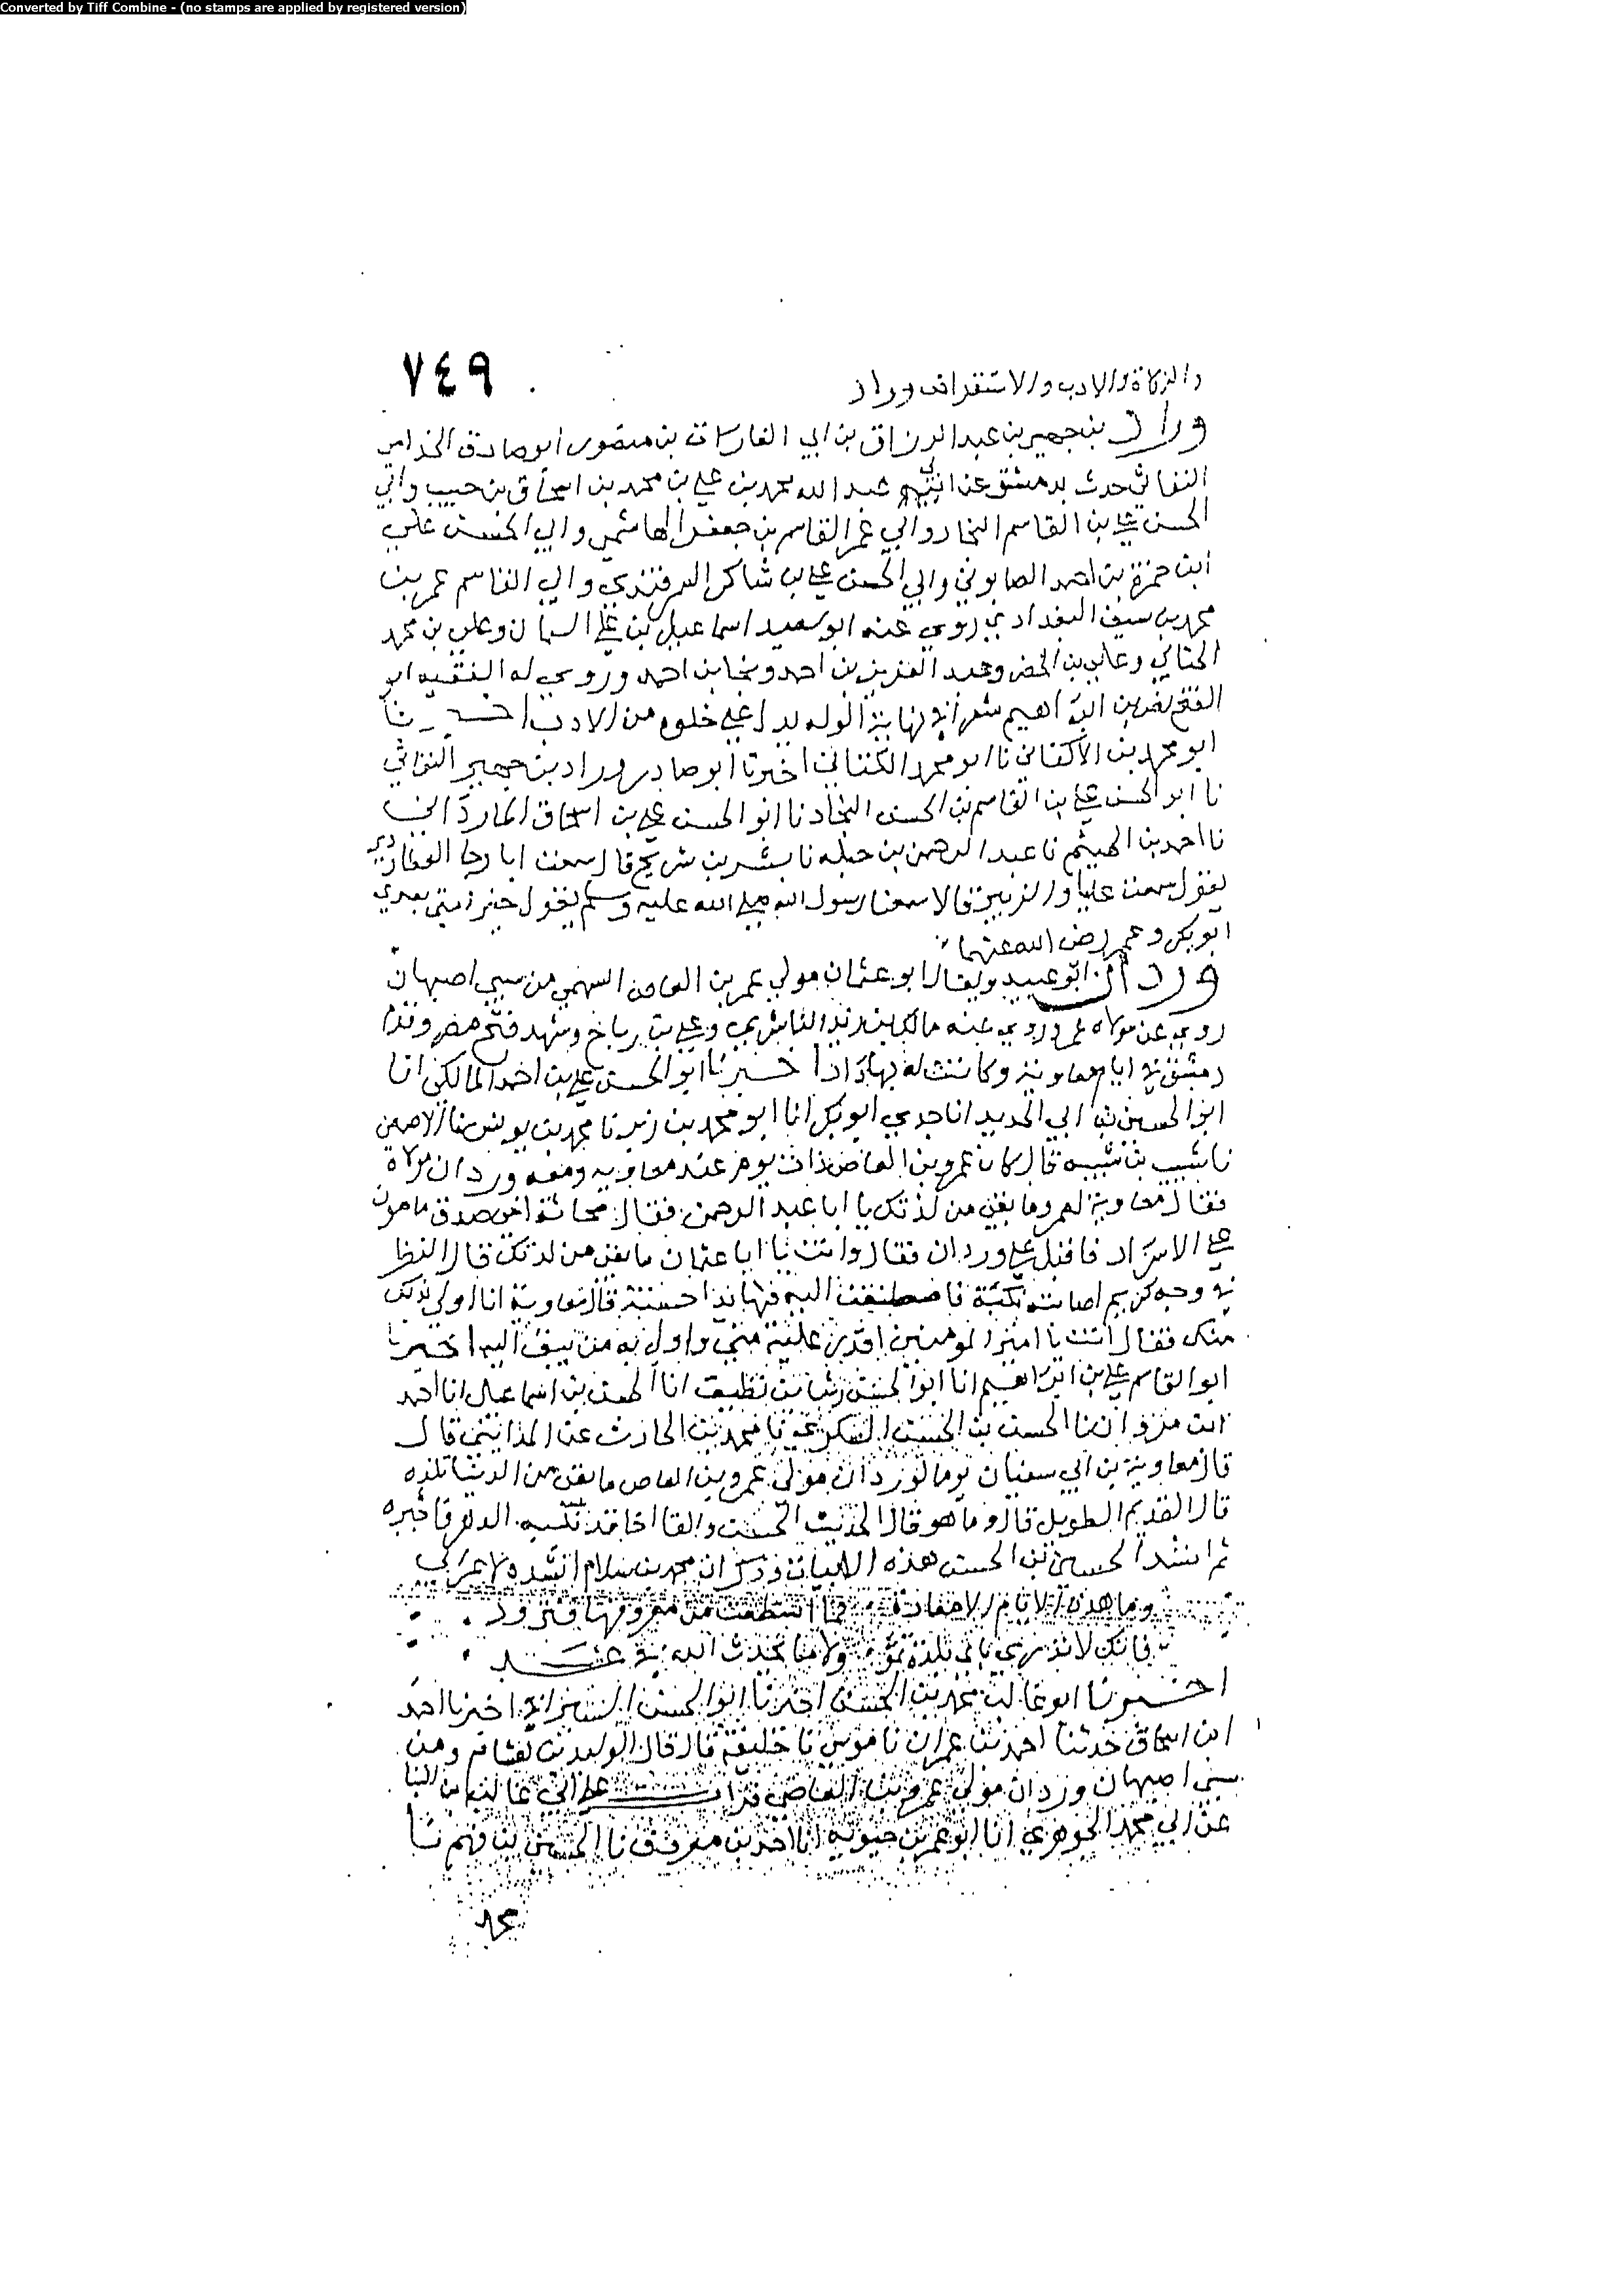 Converted by Tiff Combine - (no stamps are applied by registered version)
٧٤٩
والزكاة والادب والاستغراف وراد
وراد بن جهير بن عبد الرزاق بن ابي الفارات بن منصور ابو صادق الجذامي
حدث بدمشق عن عبد الله محمد بن علي بن محمد بن اسحاق بن حبيب وابي
الحسن علي بن القاسم النجاد وابي عمر القاسم بن جعفر الهاشمي وابي الحسن علي
ابن حمزة بن احمد الصابوني وابي الحسن علي بن شاكر السمرقندي وابي القاسم عمر بن
محمد بن سيف البغدادي روى عنه ابو سعيد اسماعيل بن علي السمان وعلي بن محمد
الحنائي وعلي بن الخضر وعبد العزيز بن احمد ونجا بن احمد وروى له الفقيه ابو
الفتح نصر بن ابراهيم شعرا في نهاية يدل على خلوه من الادب اخبرنا
ابو محمد بن الاكفاني نا ابو محمد الكتاني اخبرنا ابو صادق وراد بن جهير
نا ابو الحسن علي بن القاسم بن الحسن النجاد نا ابو الحسن علي بن اسحاق المادرائي
نا احمد بن الهيثم نا عبد الرحمن بن جبله نا بشر بن شريح قال سمعت ابا رجا العطاردي
يقول سمعت عليا والزبير قالا سمعنا رسول الله صلى الله عليه وسلم يقول خير امتي بعدي
ابو بكر وعمر رضي الله عنهما
وردان ابو عبيد ويقال ابو عثمان مولى عمرو بن العاص السهمي من سبي اصبهان
روى عن مولاه عمرو روى عنه مالك بن زيد الناشري وعلي بن رباح وشهد فتح مصر وقدم
دمشق في ايام معاوية وكانت له بها دار اخبرنا ابو الحسن علي بن احمد المالكي انا
ابو الحسن بن ابي الحديد انا جدي ابو بكر انا ابو محمد بن زبر نا محمد بن يونس نا الاصمعي
نا شبيب بن شيبه قال كان عمرو بن العاص ذات يوم عند معاويه ومعه وردان مولاه
فقال معاوية لعمرو ما بقي من لذتك يا ابا عبد الرحمن فقال محادثة اخي صدق مامون
على الاسرار فاقبل على وردان فقال وانت يا ابا عثمان ما بقي من لذتك قال النظر
في وجه كريم اصابته نكبة فاصطنعت اليه فيها يدا حسنة قال معاوية انا اولى بذلك
منك فقال انت يا امير المومنين اقدر عليه مني واولى به من سبق اليه اخبرنا
ابو القاسم علي بن ابراهيم انا ابو الحسن رشا بن نظيف انا الحسن بن اسماعيل انا احمد
ابن مروان نا الحسن بن الحسين السكري نا محمد بن الحارث عن المدائني قال
قال معاوية بن ابي سفيان يوما لوردان مولى عمرو بن العاص ما بقي من الدنيا تلذه
قال العويل الطويل قال وما هو قال الحديث الحسن والقا اخا قد نكبه الدهر فاخبره
ثم انشد الحسين بن الحسن هذه الابيات وذكر ان محمد بن سلام انشده لاعرابي
وما هذه الايام الا معارة فما اسطعت من معروفها فتزود
فانك لا تدري باي بلدة تموت ولا ما يحدث الله في غد
اخبرنا ابو غالب محمد بن الحسن اخبرنا ابو الحسن السيرافي اخبرنا احمد
ابن اسحاق حدثنا احمد بن عمران نا موسى نا خليفة قال قال الوليد بن هشام ومن
سبي اصبهان وردان مولى عمرو بن العاص قرات على ابي غالب بن البنا
عن ابي محمد الجوهري انا ابو عمر بن حيويه انا احمد بن معروف نا الحسين بن فهم نا
محمد